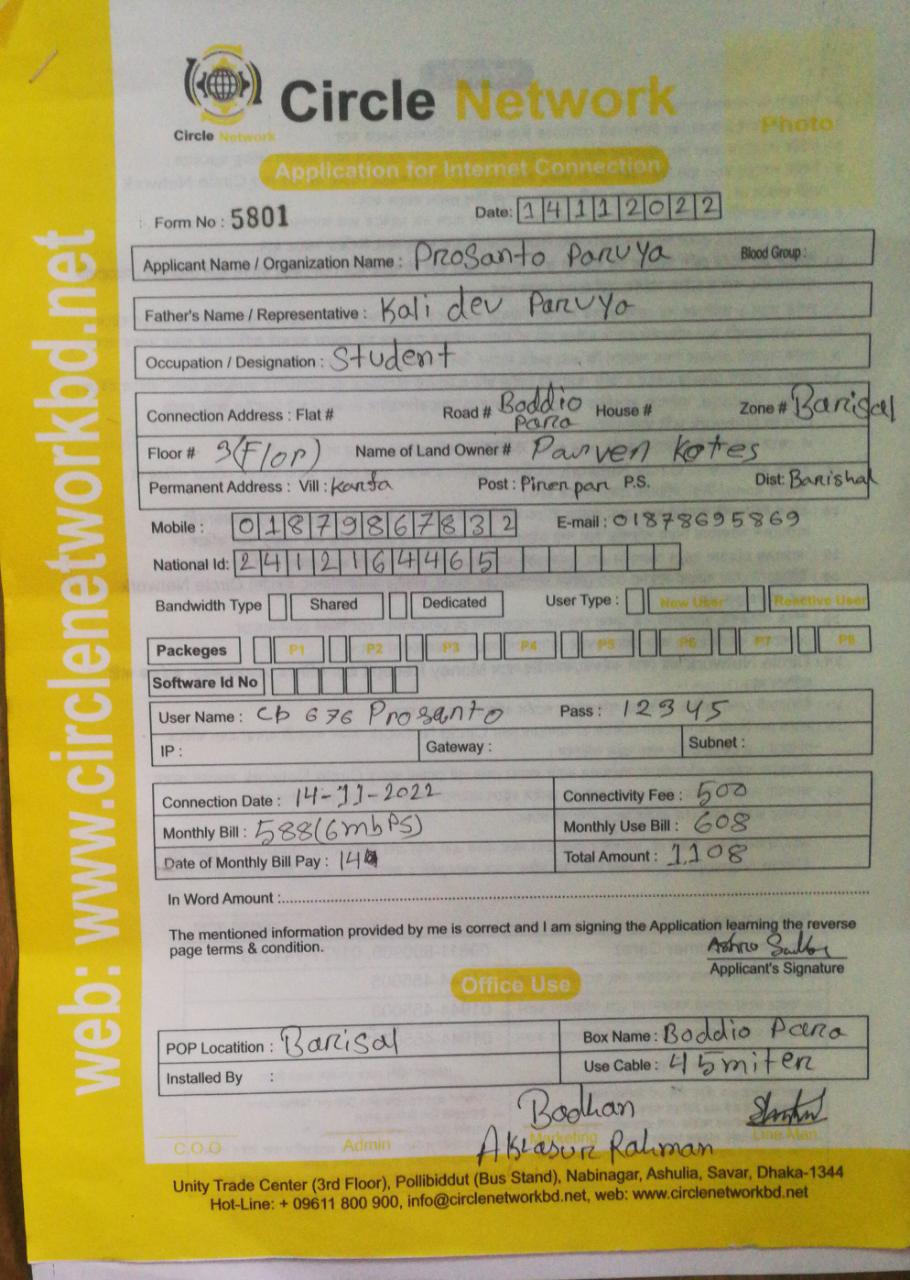 Circle Network
Circle Network
Photo
Application for Internet Connection
Form No : 5801
Date: 14112022
Applicant Name / Organization Name : Prosanto Paruya Blood Group :
Father's Name / Representative : Kali dev Paruya
Occupation / Designation : Student
Connection Address : Flat # Road # Boddio Para House # Zone # Barisal
Floor # 3(Flor) Name of Land Owner # Parven Kotes
Permanent Address : Vill : Post : P.S. Dist: Barishal
Mobile : 01879867832 E-mail : 01878695869
National Id: 2412164465
Bandwidth Type Shared Dedicated User Type : New User Reactive User
Packeges P1 P2 P3 P4 P5 P6 P7 P8
Software Id No
User Name : cb 676 Prosanto Pass : 12345
IP : Gateway : Subnet :
Connection Date : 14-11-2022 Connectivity Fee : 500
Monthly Bill : 588(6mbPS) Monthly Use Bill : 608
Date of Monthly Bill Pay : 14 Total Amount : 1108
In Word Amount :
The mentioned information provided by me is correct and I am signing the Application learning the reverse
page terms & condition.
Applicant's Signature
Office Use
POP Locatition : Barisal Box Name : Boddio Para
Installed By : Use Cable : 45miter
Bodhan
Rahman
C.O.O Admin Marketing Line Man
Unity Trade Center (3rd Floor), Pollibiddut (Bus Stand), Nabinagar, Ashulia, Savar, Dhaka-1344
Hot-Line: + 09611 800 900, info@circlenetworkbd.net, web: www.circlenetworkbd.net
web: www.circlenetworkbd.net